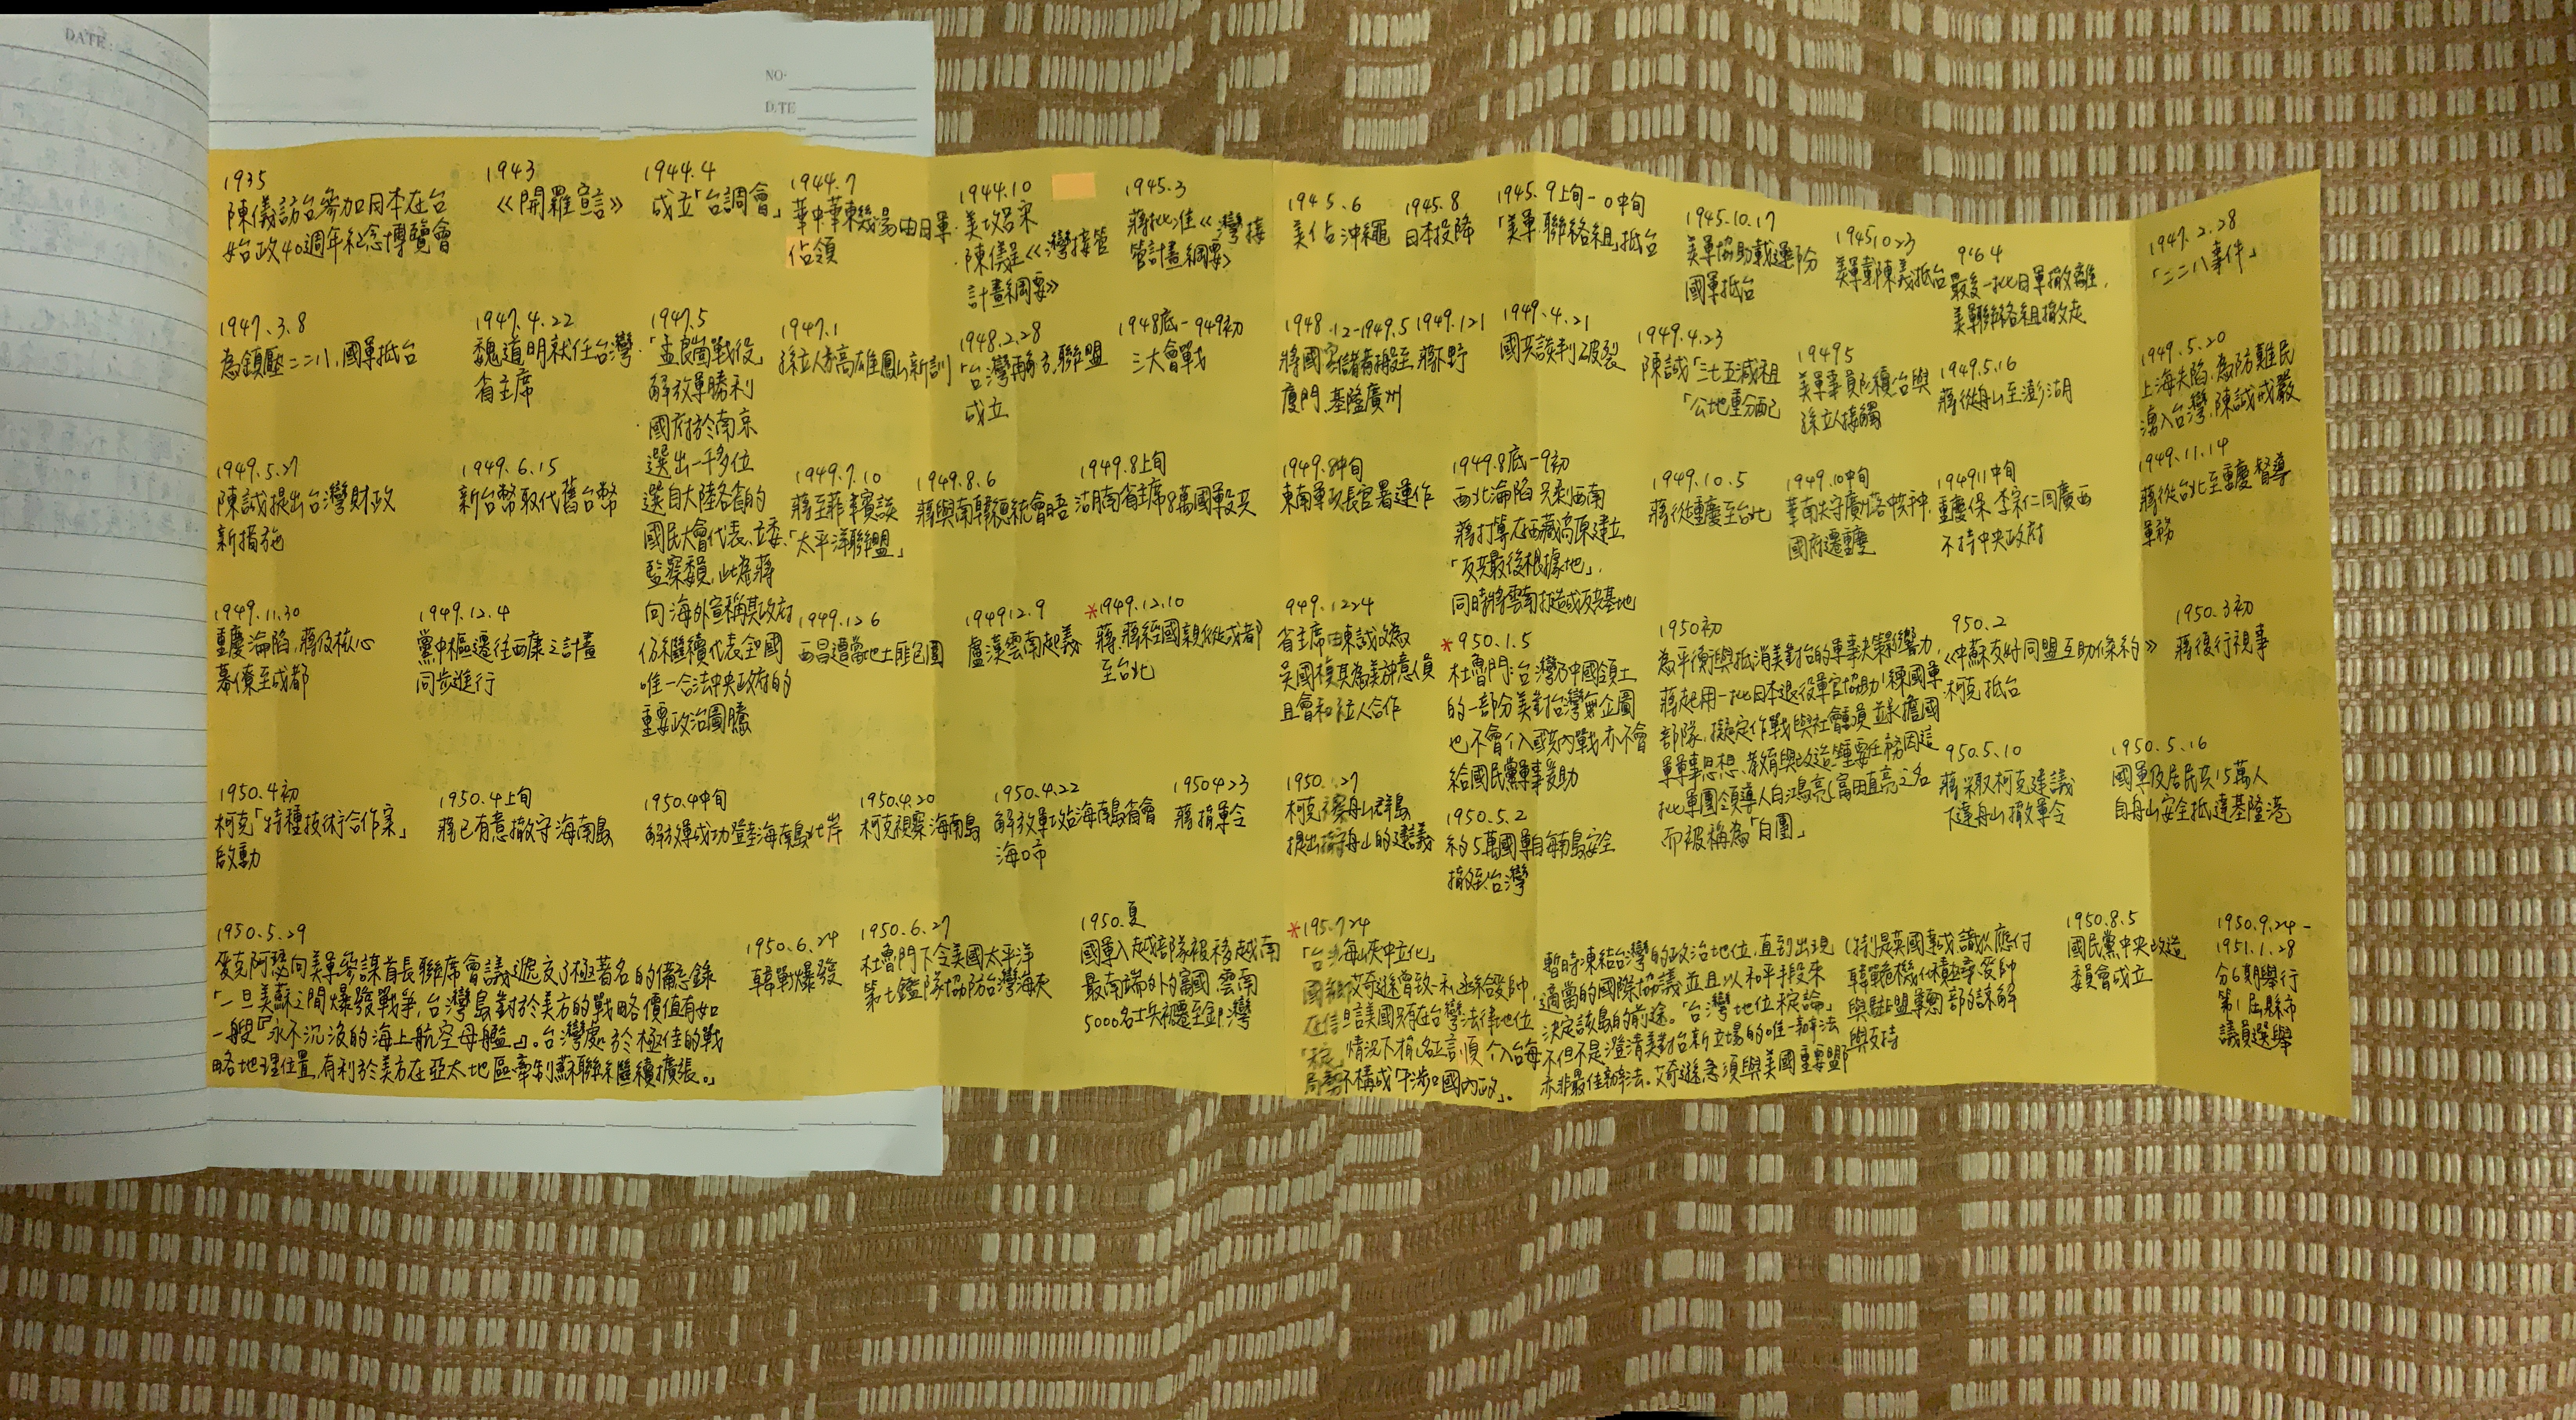 DATE:
NO·
DATE
1935
陳儀訪台參加日本在台
始政40週年紀念博覽會
1943
《開羅宣言》
1944.4
成立「台調會」
1944.7
華中華東幾場由日軍
佔領
1944.10
·美攻呂宋
·陳儀呈《灣接管
計畫綱要》
1945.3
蔣批准《灣接
管計畫綱要》
1945.6
美佔沖繩
1945.8
日本投降
1945.9上旬-0中旬
「美軍聯絡組」抵台
1945.10.17
美軍協助載運部分
國軍抵台
1945.1023
美軍載陳義抵台
9464
最後一批日軍撤離,
美軍聯絡組撤走
1947.2.28
「二二八事件」
1947.3.8
為鎮壓二二八,國軍抵台
1947.4.22
魏道明就任台灣
省主席
1947.5
·「孟良崮戰役」
解放軍勝利
·國府於南京
選出一千多位
選自大陸各省的
國民大會代表、立委、
監察委員,此為蔣
向海外宣稱其政府
仍繼續代表全國
唯一合法中央政府的
重要政治圖騰
1947.1
孫立人於高雄鳳山新訓
1948.2.28
「台灣再解放聯盟」
成立
1948底-949初
三大會戰
1948.12-1949.5
廈門、基隆廣州
1949.121
蔣下野
1949.4.21
國共談判破裂
1949.4.23
陳誠「三七五減租
「公地重分配
19495
孫立人接觸
1949.5.16
蔣從舟山至澎湖
1949.5.20
上海失陷,為防難民
湧入台灣,陳誠戒嚴
1949.5.27
陳誠提出台灣財政
新措施
1949.6.15
新台幣取代舊台幣
1949.7.10
蔣至菲律賓談
「太平洋聯盟」
1949.8.6
蔣與南韓總統會晤
1949.8上旬
湖南省主席8萬國軍投共
1949.8中旬
東南軍政長官署運作
1949.8底-9初
西北淪陷 只剩西南
蔣打算在西藏高原建立
「反共最後根據地」,
同時將雲南打造成反共基地
1949.10.5
蔣從重慶至台北
1949.10中旬
國府遷重慶
194911中旬
重慶保,李宗仁同廣西
不持中央政府
1949.11.14
蔣從台北至重慶督導
軍務
1949.11.30
重慶淪陷,蔣及核心
幕僚至成都
1949.12.4
黨中樞遷往西康之計畫
同步進行
1949.126
西昌遭當地土匪包圍
194912.9
盧漢雲南起義
*1949.12.10
蔣,蔣經國親從成都
至台北
949.1224
省主席由陳誠改為
吳國楨其為美討意人員
且會和立人合作
*950.1.5
杜魯門:台灣乃中國領土
的一部分美對台灣無企圖
也不會介入國共內戰亦不會
給國民黨軍事援助
1950初
為平衡與抵消美對台的軍事決策影響力,
蔣起用一批日本退役軍官協助訓練國軍
部隊,擬定作戰與社會動員,並承擔國
軍軍事思想、教育與改造等重要任務因這
批軍團領導人白鴻亮(富田直亮)之名
而被稱為「白團」
950.2
《中蘇友好同盟互助條約》
·柯克抵台
1950.3初
蔣復行視事
1950.4初
柯克「特種技術合作案」
啟動
1950.4上旬
蔣已有意撤守海南島
1950.4中旬
解放軍成功登陸海南島北岸
1950.4.20
柯克視察海南島
1950.4.22
解放軍攻佔海南島省會
海口市
1950423
蔣撤軍令
1950.1.27
柯克視察舟山群島
提出撤守舟山的建議
1950.5.2
約5萬國軍自海南島安全
撤至台灣
950.5.10
蔣采取柯克建議
下達舟山撤軍令
1950.5.16
國軍及居民共15萬人
自舟山安全抵達基隆港
1950.5.29
麥克阿瑟向美軍參謀首長聯席會議遞交了極著名的備忘錄
「一旦美蘇之間爆發戰爭,台灣島對於美方的戰略價值有如
一艘『永不沉沒的海上航空母艦』。台灣處於極佳的戰
略地理位置,有利於美方在亞太地區牽制蘇聯繼續擴張。」
1950.6.24
韓戰爆發
1950.6.27
杜魯門下令美國太平洋
第七艦隊協防台灣海峽
1950.夏
國軍入越部隊被移越南
最南端外的富國 雲南
5000名士兵被遷至金門灣
*195.724
「台海峽中立化」
國艾奇遜曾致利函給發帥,
在信 美國只有在台灣法律地位
情況下 名正言順 介入台海
不構成「干涉中國內政」。
暫時凍結台灣的政治地位,直到出現
適當的國際協議並且以和平手段來
決定該島的前途。「台灣地位未定論」
不但不是澄清美對台新立場的唯一辦法
亦非最佳辦法。艾奇遜急須與美國重要盟邦
(特別是英國)達成共識以應付
與支持
1950.8.5
國民黨中央改造
委員會成立
1950.9.24-
1951.1.28
分6期舉行
第1屆縣市
議員選舉